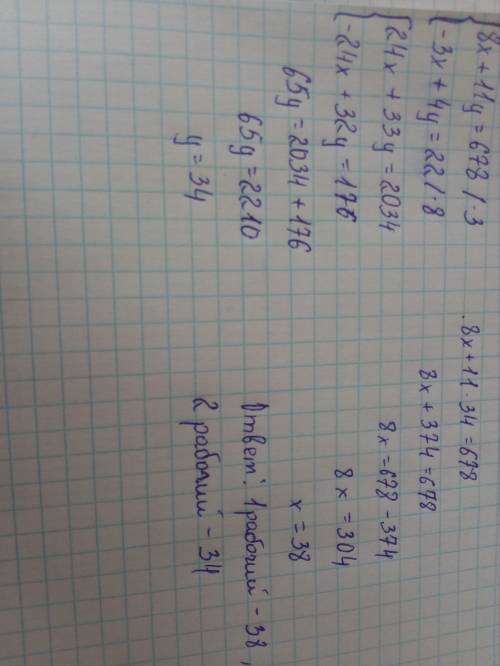 {8x + 11y = 678 | · 3
{-3x + 4y = 22 | · 8
{24x + 33y = 2034
{-24x + 32y = 176
65y = 2034 + 176
65y = 2210
y = 34
8x + 11 · 34 = 678
8x + 374 = 678
8x = 678 - 374
8x = 304
x = 38
Ответ: 1 рабочий - 38,
2 рабочий - 34